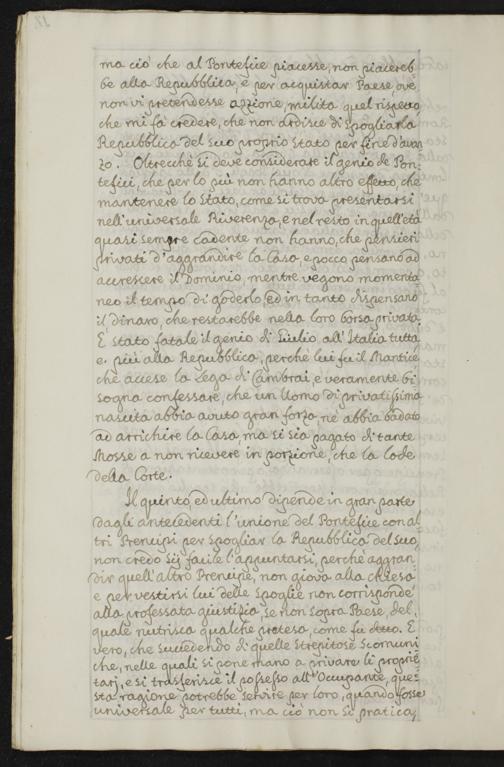 ma ciò che al Pontefice piacesse, non piacereb
be alla Repubblica, e per acquistar Paese, ove
non vi pretendesse azzione, milita quel rispetto
che mi fà credere, che non ardisce di spogliar la
Repubblica del suo proprio stato per fine d'avan
zo. Oltrecchè si deve considerare il genio de Pon=
tefici, che per lo più non hanno altro effetto, che
mantenere lo Stato, come si trova presentarsi
nell'universale Riverenza, e nel resto in quell'età
quasi sempre cadente non hanno, che pensieri
privati d'aggrandire la Casa, e pocco pensano ad
accrescere il Dominio, mentre vegono momenta
neo il tempo di goderlo, ed in tanto dispensano
il dinaro, che restarebbe nella loro borsa privata.
È stato fatale il genio di Giulio all'Italia tutta
e più alla Repubblica, perchè lui fu il Mantice
che accese la Lega di Cambrai, e veramente bi
sogna confessare, che un Uomo di privatissima
nascita abbia avuto gran forza, nè abbia badato
ad arrichire la Casa, ma si sia pagato di tante
Mosse a non ricevere in porzione, che la Lode
della Corte.
Il quinto, ed ultimo dipende in gran parte
dagli antecedenti l'unione del Pontefice con al
tri Prencipi per spogliar la Repubblica del suo,
non credo sij facile l'appuntarsi, perchè aggran
dir quell'altro Prencipe, non giova alla chiesa
e per vestirsi lui delle spoglie non corrisponde
alla professata giustizia, se non sopra Paese, del
quale nutrisca qualche pretesa, come fu detto. È
vero, che succedendo di quelle strepitose scomuni
che, nelle quali si pone mano a privare li proprie
tarj, e si trasferisce il possesso all'Occupante, que=
sta ragione potrebbe servire per loro, quando fosse
universale per tutti, ma ciò non si pratica,